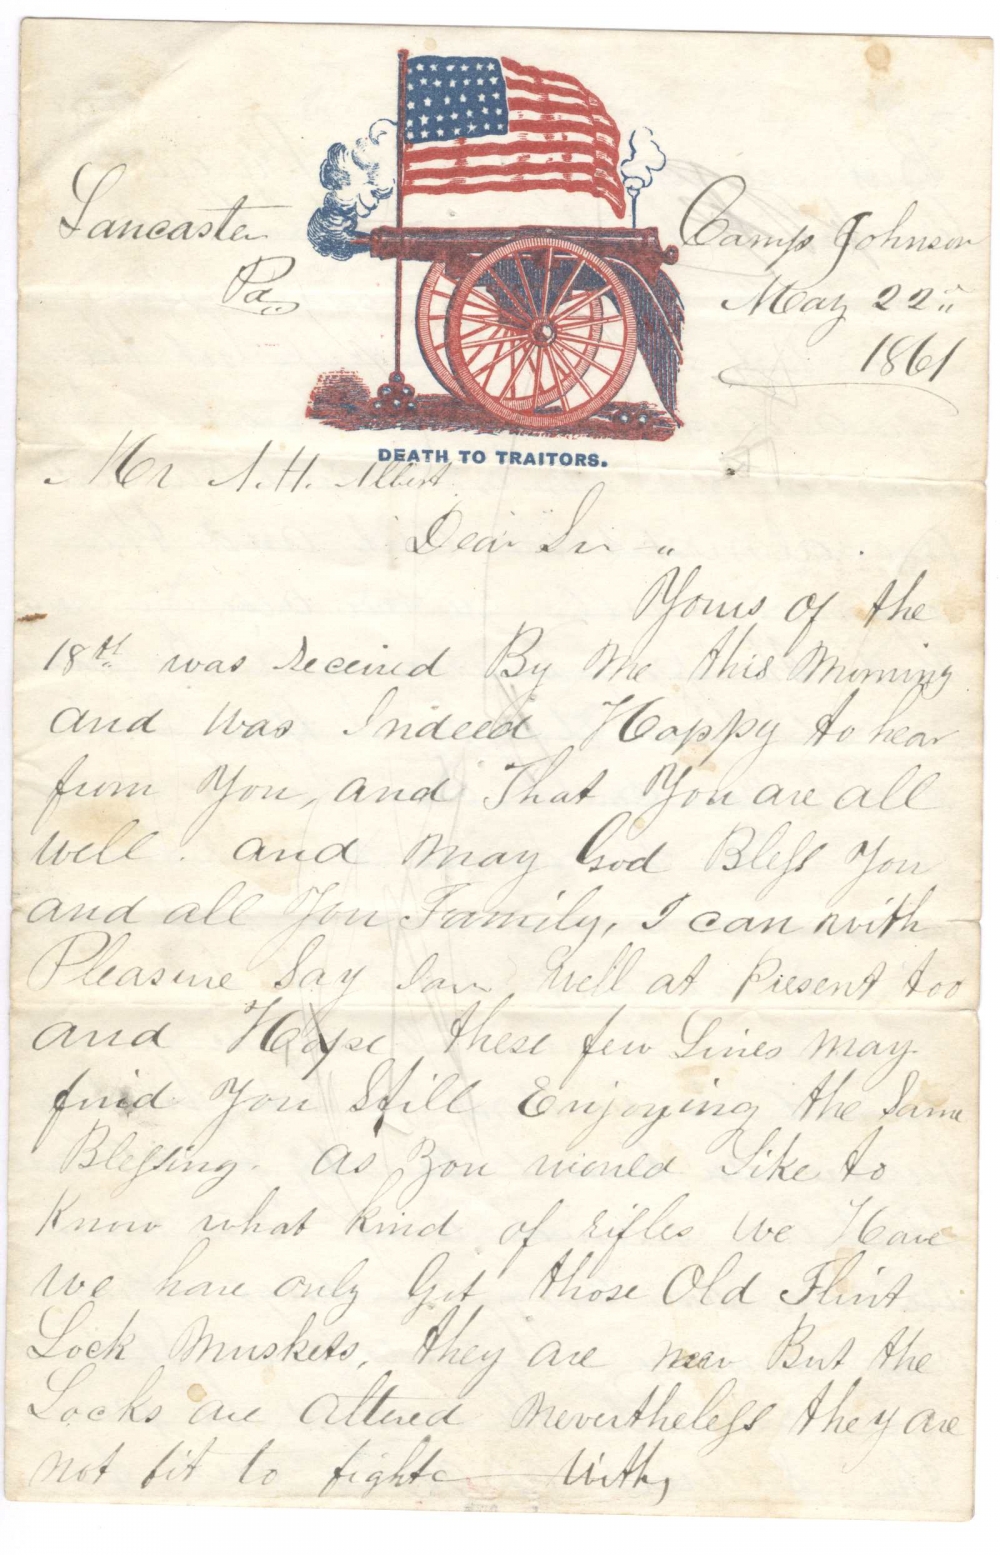 Lancaster Camp Johnson
Pa May 22"
1861
DEATH TO TRAITORS.
Mr A.H. Albert
Dear Sir "
Yours of the
18th was received By Me this Morning
and was Indeed Happy to hear
from You, and That You are all
well. and May God Bless You
and all You Family, I can with
Pleasure Say I am well at Present too
and Hope these few Lines May
find You Still Enjoying the Same
Blessing. as you would Like to
Know what kind of rifles we Have
we have only Got those Old Flint
Lock Muskets, they are new But the
Locks are altered Nevertheless they are
not fit to fight with,